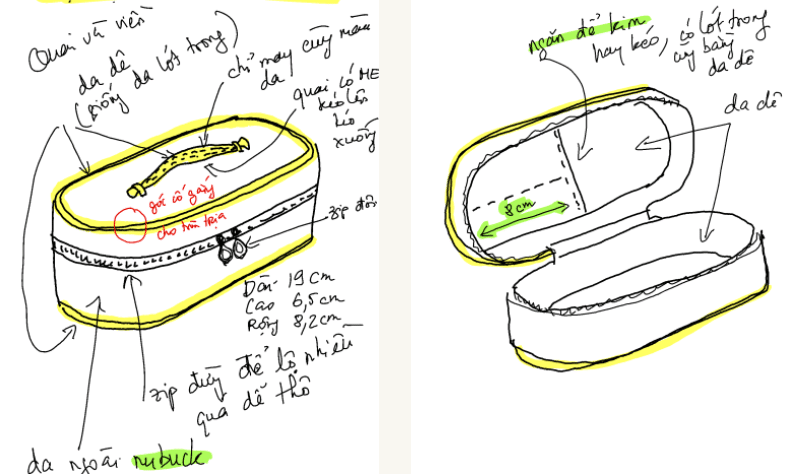 Quai và viền
da dê
(giống da lót trong)
chỉ may cùng màu
da
quai có thể
kéo lên
kéo
xuống
góc cố gắng
cho tròn trịa
zip đôi
Dài 19 cm
Cao 6,5 cm
Rộng 8,2 cm
zip đừng để lộ nhiều
qua dễ thô
da ngoài nubuck
ngăn để kim
hay kéo, có lót trong
cũng bằng
da dê
da dê
8 cm